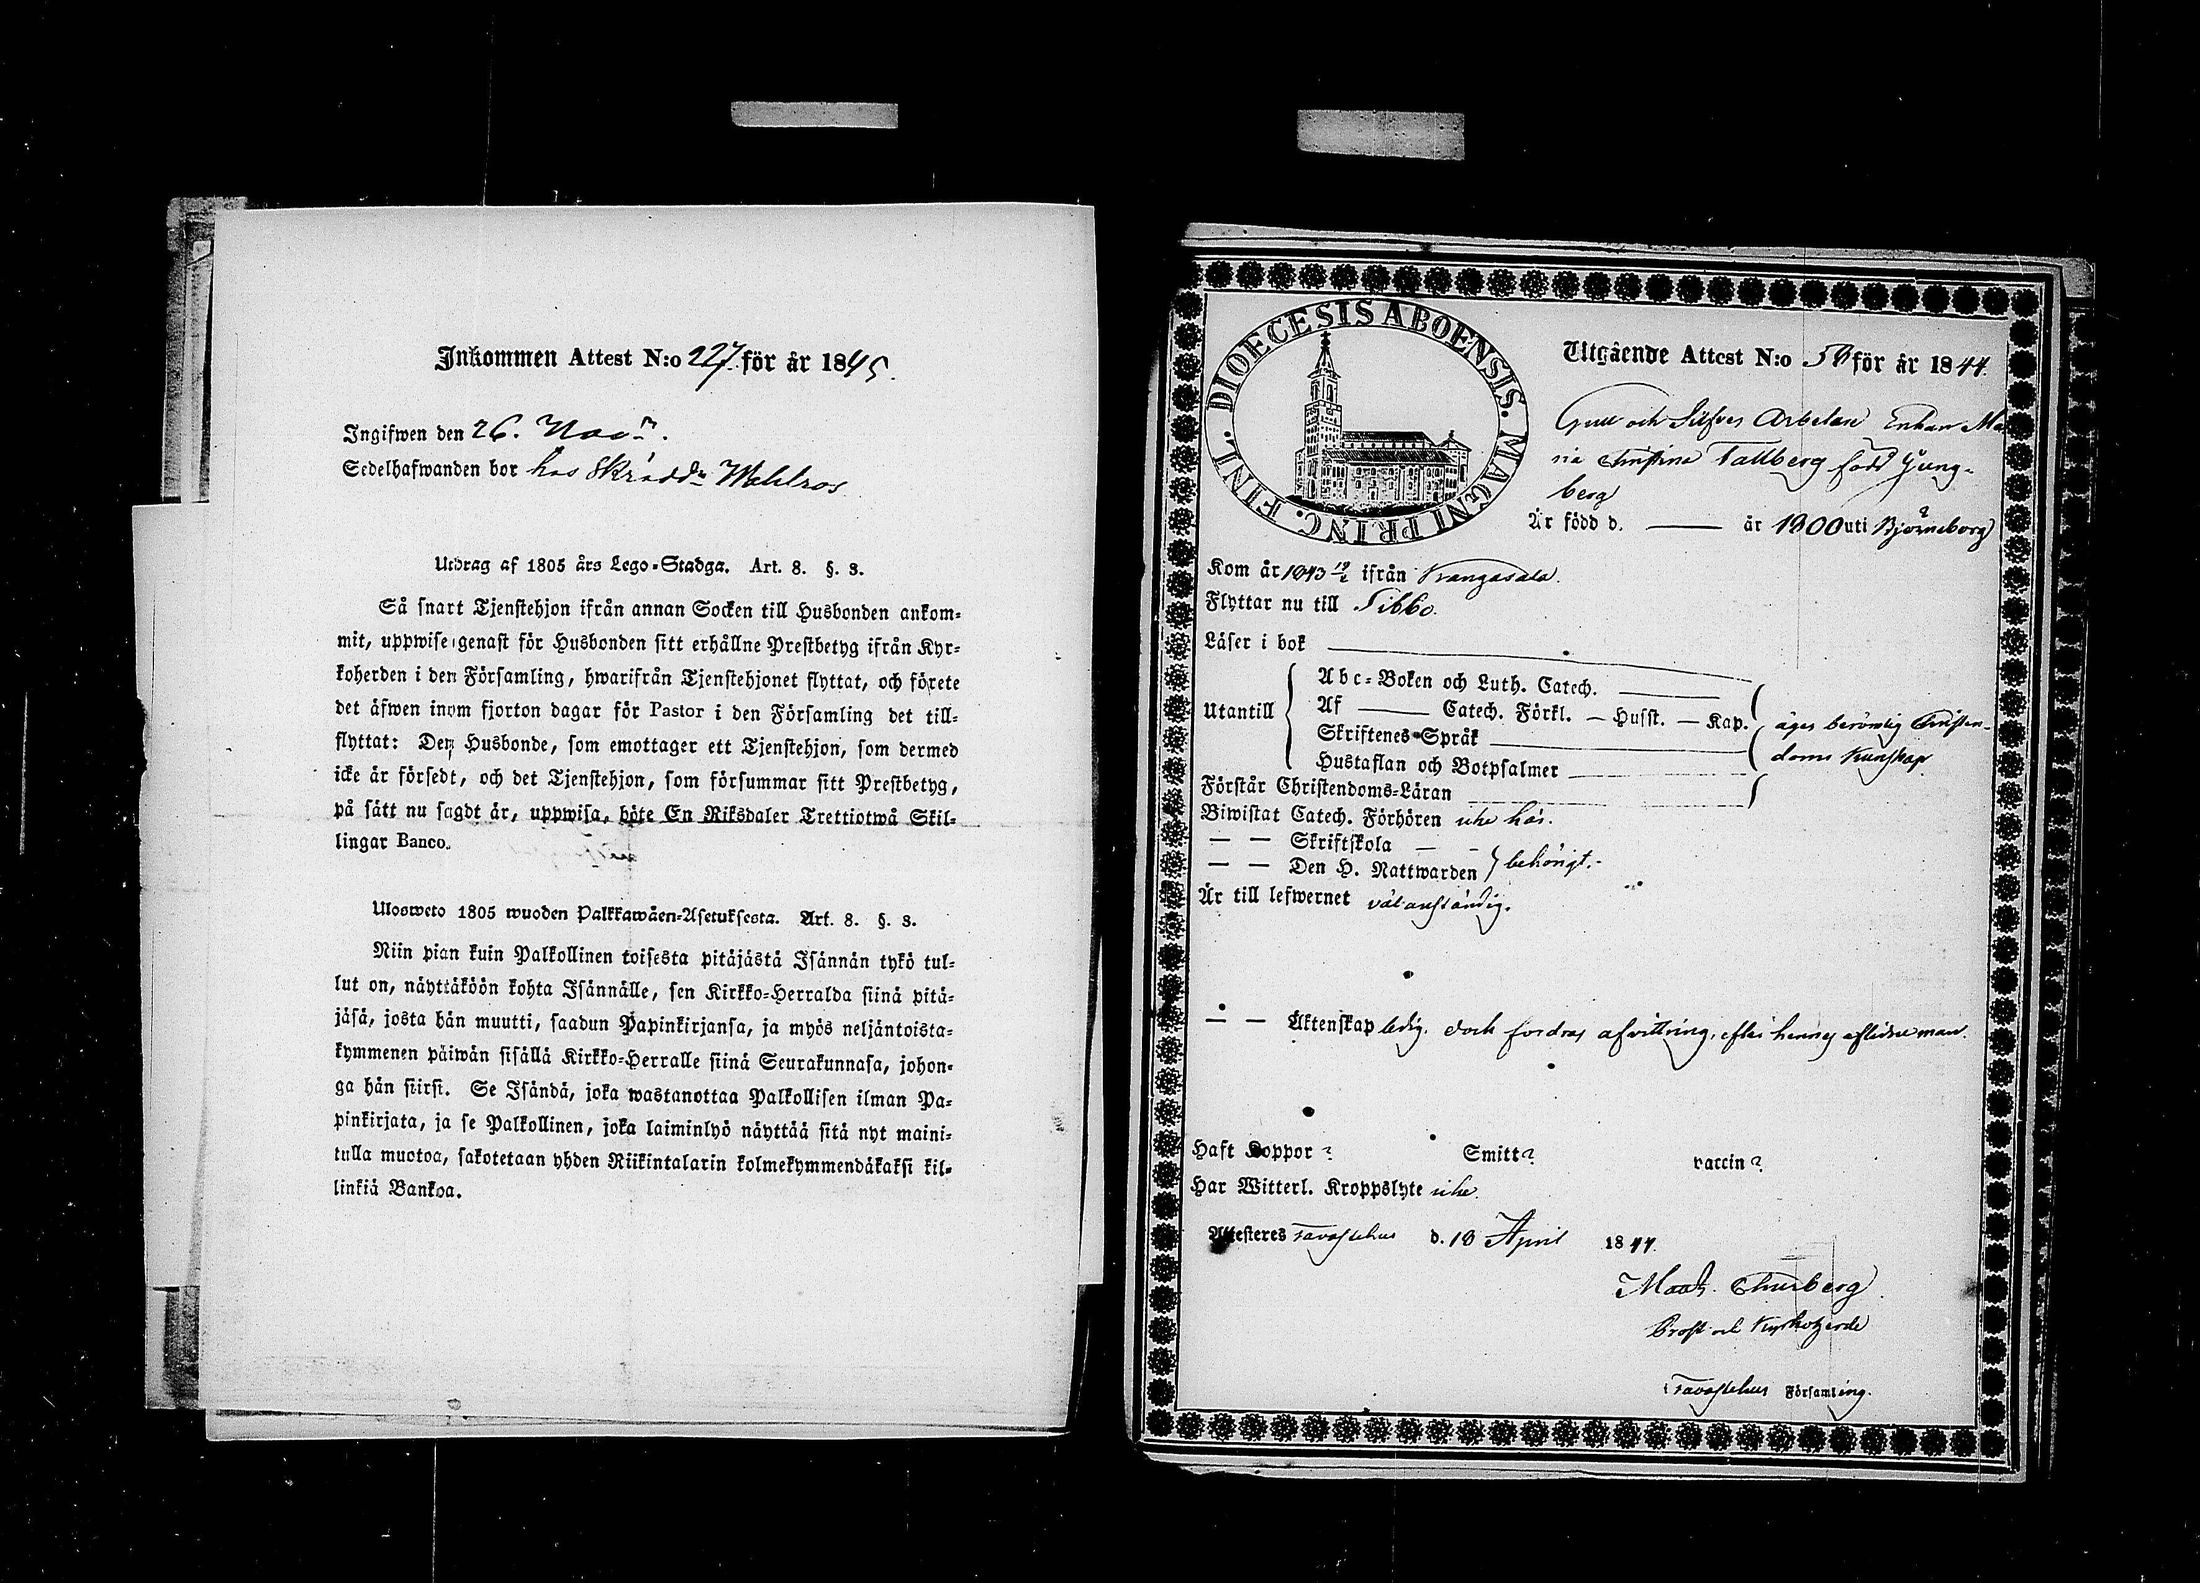 Inkommen Attest N:o 227 för år 1845.
Ingifwen den 26. Novr.
Sedelhafwanden bor hos Skrädd. Wahlros
Utdrag af 1805 års Lego-Stadga. Art. 8. §. 3.
Så snart Tjenstehjon ifrån annan Socken till Husbonden ankom-
mit, uppwise genast för Husbonden sitt erhållne Prestbetyg ifrån Kyr-
koherden i den Församling, hwarifrån Tjenstehjonet flyttat, och förete
det äfwen inom fjorton dagar för Pastor i den Församling det till-
flyttat: Den Husbonde, som emottager ett Tjenstehjon, som dermed
icke är försedt, och det Tjenstehjon, som försummar sitt Prestbetyg,
på sätt nu sagdt är, uppwisa, böte En Riksdaler Trettiotwå Skil-
lingar Banco.
Ulosweto 1805 wuoden Palkkawäen-Asetuksesta. Art. 8. §. 3.
Niin pian kuin Palkollinen toisesta pitäjästä Isännän tykö tul-
lut on, näyttäköön kohta Isännälle, sen Kirkko-Herralda siinä pitä-
jäsä, josta hän muutti, saadun Papinkirjansa, ja myös neljäntoista-
kymmenen päiwän sisällä Kirkko-Herralle siinä Seurakunnasa, johon-
ga hän siirsi. Se Isändä, joka wastanottaa Palkollisen ilman Pa-
pinkirjata, ja se Palkollinen, joka laiminlyö näyttää sitä nyt maini-
tulla muotoa, sakotetaan yhden Riikintalarin kolmekymmendäkaksi kil-
linkiä Bankoa.
DIOECESIS ABOENSIS. MAGNI PRINC. FINL.
Utgående Attest N:o för år 1844.
Gull och Silfver Arbetare Enkan Ma
ria Christina Tallberg född Ljung-
berg
Är född d. — år 1800 uti Björneborg
Kom år 1843 ifrån Kangasala.
Flyttar nu till Sibbo.
Läser i bok
Utantill
Abc-Boken och Luth. Catech.
Af — Catech. Förkl. — Husst. — Kap.
Skriftenes-Språk
Hustaflan och Botpsalmer
äger berömlig Christen-
doms Kunskap
Förstår Christendoms-Läran
Biwistat Catech. Förhören icke här.
— — Skriftskola — -
— — Den H. Nattwarden behörigt.-
Är till lefwernet välanständig.
— — Äktenskap ledig, dock fordras afvittring, efter hennes aflidne man.
Haft Koppor? Smitt? vaccin?
Har Witterl. Kroppslyte icke.
Attesteres Tavastehus d. 18 April 1844.
Thurberg.
Prost och Kyrkoherde
i Tavastehus Församling.